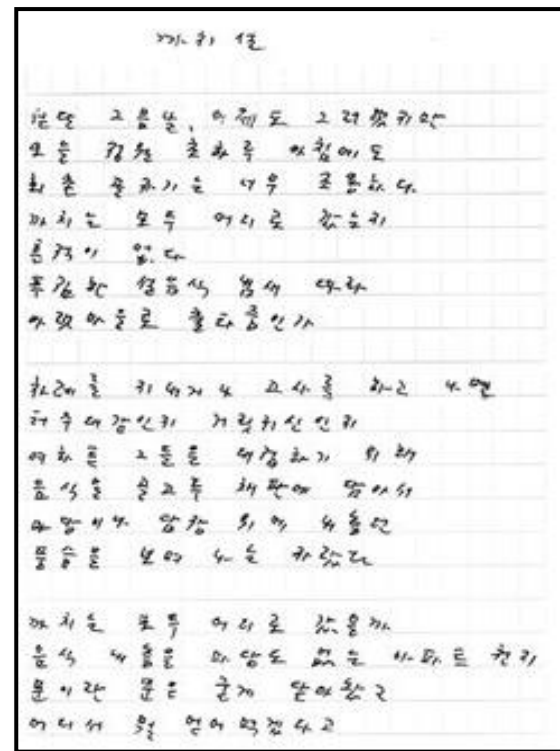 까치설
섣달 그믐날, 어제도 그러했지만
오늘 정월 초하루 아침에도
회촌 골짜기는 너무 조용하다
까치는 모두 어디로 갔는지
흔적이 없다
푹검한 설음식 냄새 따라
아랫마을로 출타중인가
차례를 지내거나 고사를 하고 나면
터주대감인지 거릿귀신인지
여하튼 그들을 대접하기 위해
음식을 골고루 채판에 담아서
마당이나 담장 위에 내놓던
풍습을 보며 나는 자랐다
까치는 모두 어디로 갔을까
음식 내놓을 마당도 없는 아파트 천지
문이란 문은 굳게 닫아놓고
어디서 뭘 얻어먹겠다고